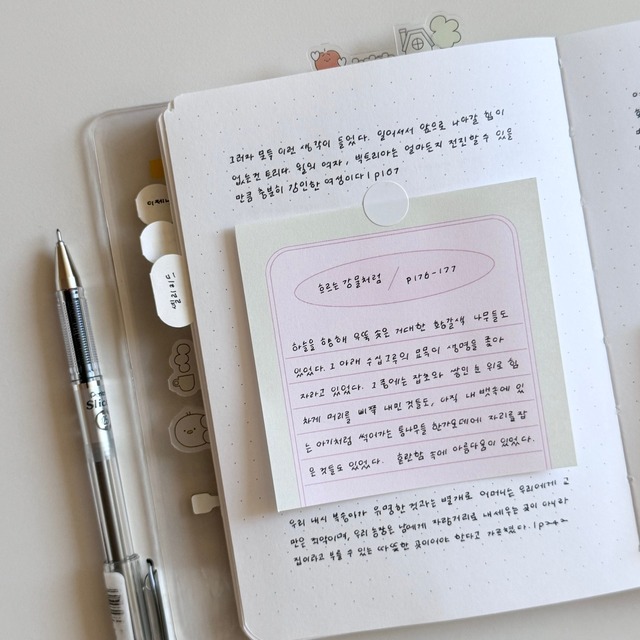 그러자 모두 이런 생각이 들었다. 일어서서 앞으로 나아갈 힘이
없는건 토리다 윌의 여자, 빅토리아는 얼마든지 전진할 수 있을
만큼 충분히 강인한 여성이다 | p107
흐르는 강물처럼 / p176-177
하늘을 향해 우뚝 솟은 거대한 황갈색 나무들도
있었다. 그 아래 수십 그루의 묘목이 생명을 좇아
자라고 있었다. 그 중에는 잡초와 쌓인 눈 위로 힘
차게 머리를 삐쭉 내민 것들도, 아직 내 뱃속에 있
는 아기처럼 썩어가는 통나무들 한가운데에 자리를 잡
은 것들도 있었다. 혼란함 속에 아름다움이 있었다.
우리 내시 복숭아가 유명한 것과는 별개로 어머니는 우리에게 고
만은 죄악이며, 우리 농장은 남에게 자랑거리로 내세우는 곳이 아니라
집이라고 부를 수 있는 따뜻한 곳이어야 한다고 가르쳤다. | p242
이제니
샐리루드
Slic